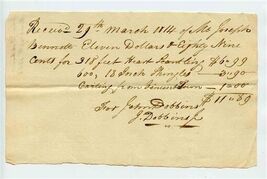 Receivd 29th March 1814 of Mr Joseph
Bennett Eleven Dollars & Eighty Nine
Cents for 318 feet Heart Scantling $6=99
600, 18 Inch Shingles 3=90
Carting from 1=00
$11=89
For John Dobbins
J. Dobbins